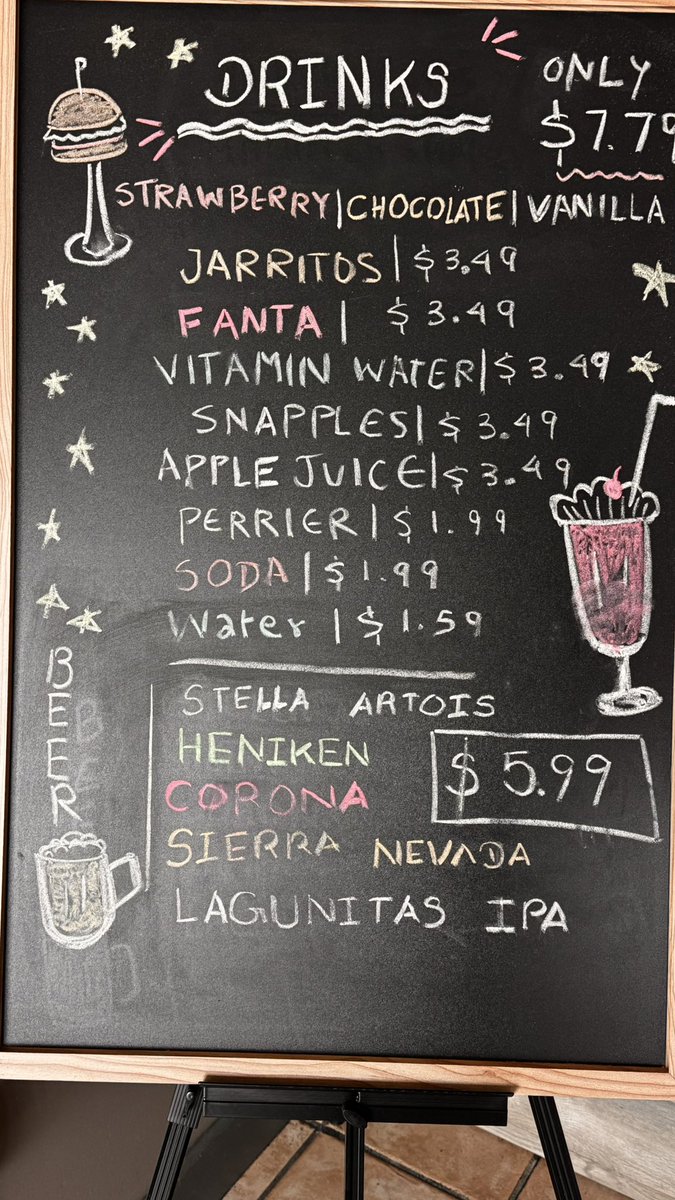 DRINKS
ONLY
$7.79
STRAWBERRY|CHOCOLATE|VANILLA
JARRITOS|$3.49
FANTA| $3.49
VITAMIN WATER|$3.49
SNAPPLES|$3.49
APPLE JUICE|$3.49
PERRIER|$1.99
SODA|$1.99
Water|$1.59
BEER
STELLA ARTOIS
HENIKEN
$5.99
CORONA
SIERRA NEVADA
LAGUNITAS IPA